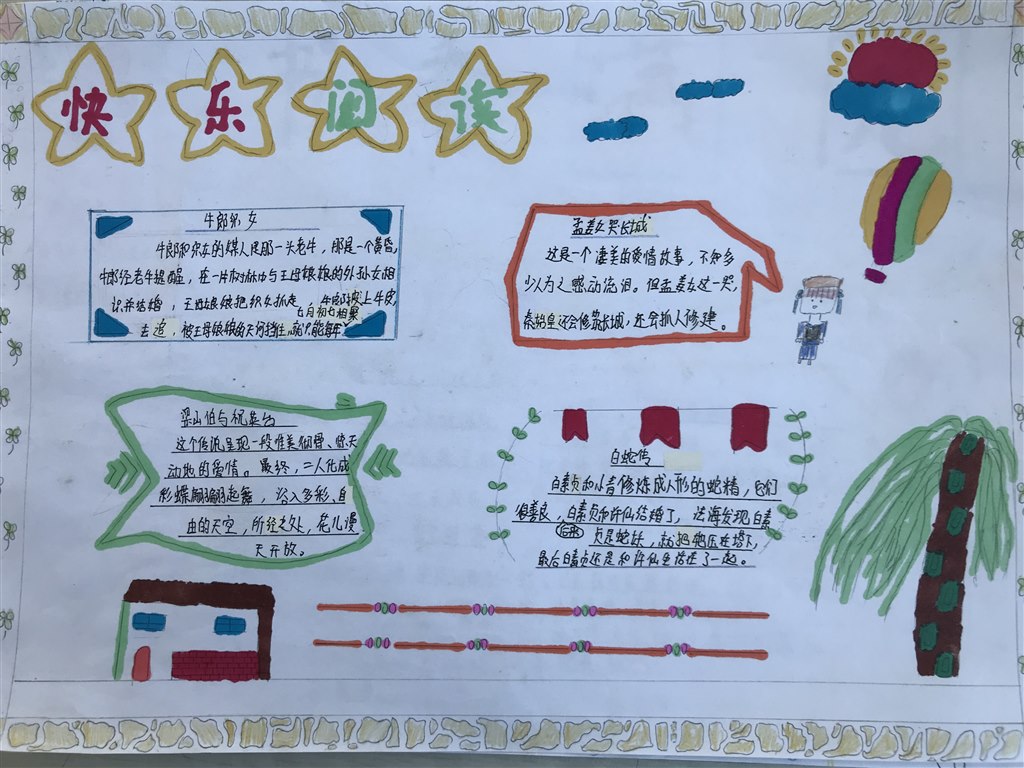 快乐阅读
牛郎织女
牛郎和织女的媒人是那一头老牛，那是一个黄昏，
牛郎经老牛提醒，在一片树林中与王母娘娘的外孙女相
识并结婚，王母娘娘把织女抓走，牛郎披上牛皮，
去追，被王母娘娘的天河挡住，就只能每年
七月初七相聚
孟姜女哭长城
这是一个凄美的爱情故事，不知多
少人为之感动流泪。但孟姜女这一哭，
秦始皇还会修筑长城，还会抓人修建。
梁山伯与祝英台
这个传说呈现一段唯美彻骨、惊天
动地的爱情。最终，二人化成
彩蝶翩翩起舞，浴入多彩、自
由的天空，所经之处，花儿漫
天开放。
白蛇传
白素贞和小青修炼成人形的蛇精，它们
很善良，白素贞和许仙结婚了，法海发现白素
贞是蛇妖，就把她压在塔下，
最后白素贞还是和许仙生活在了一起。